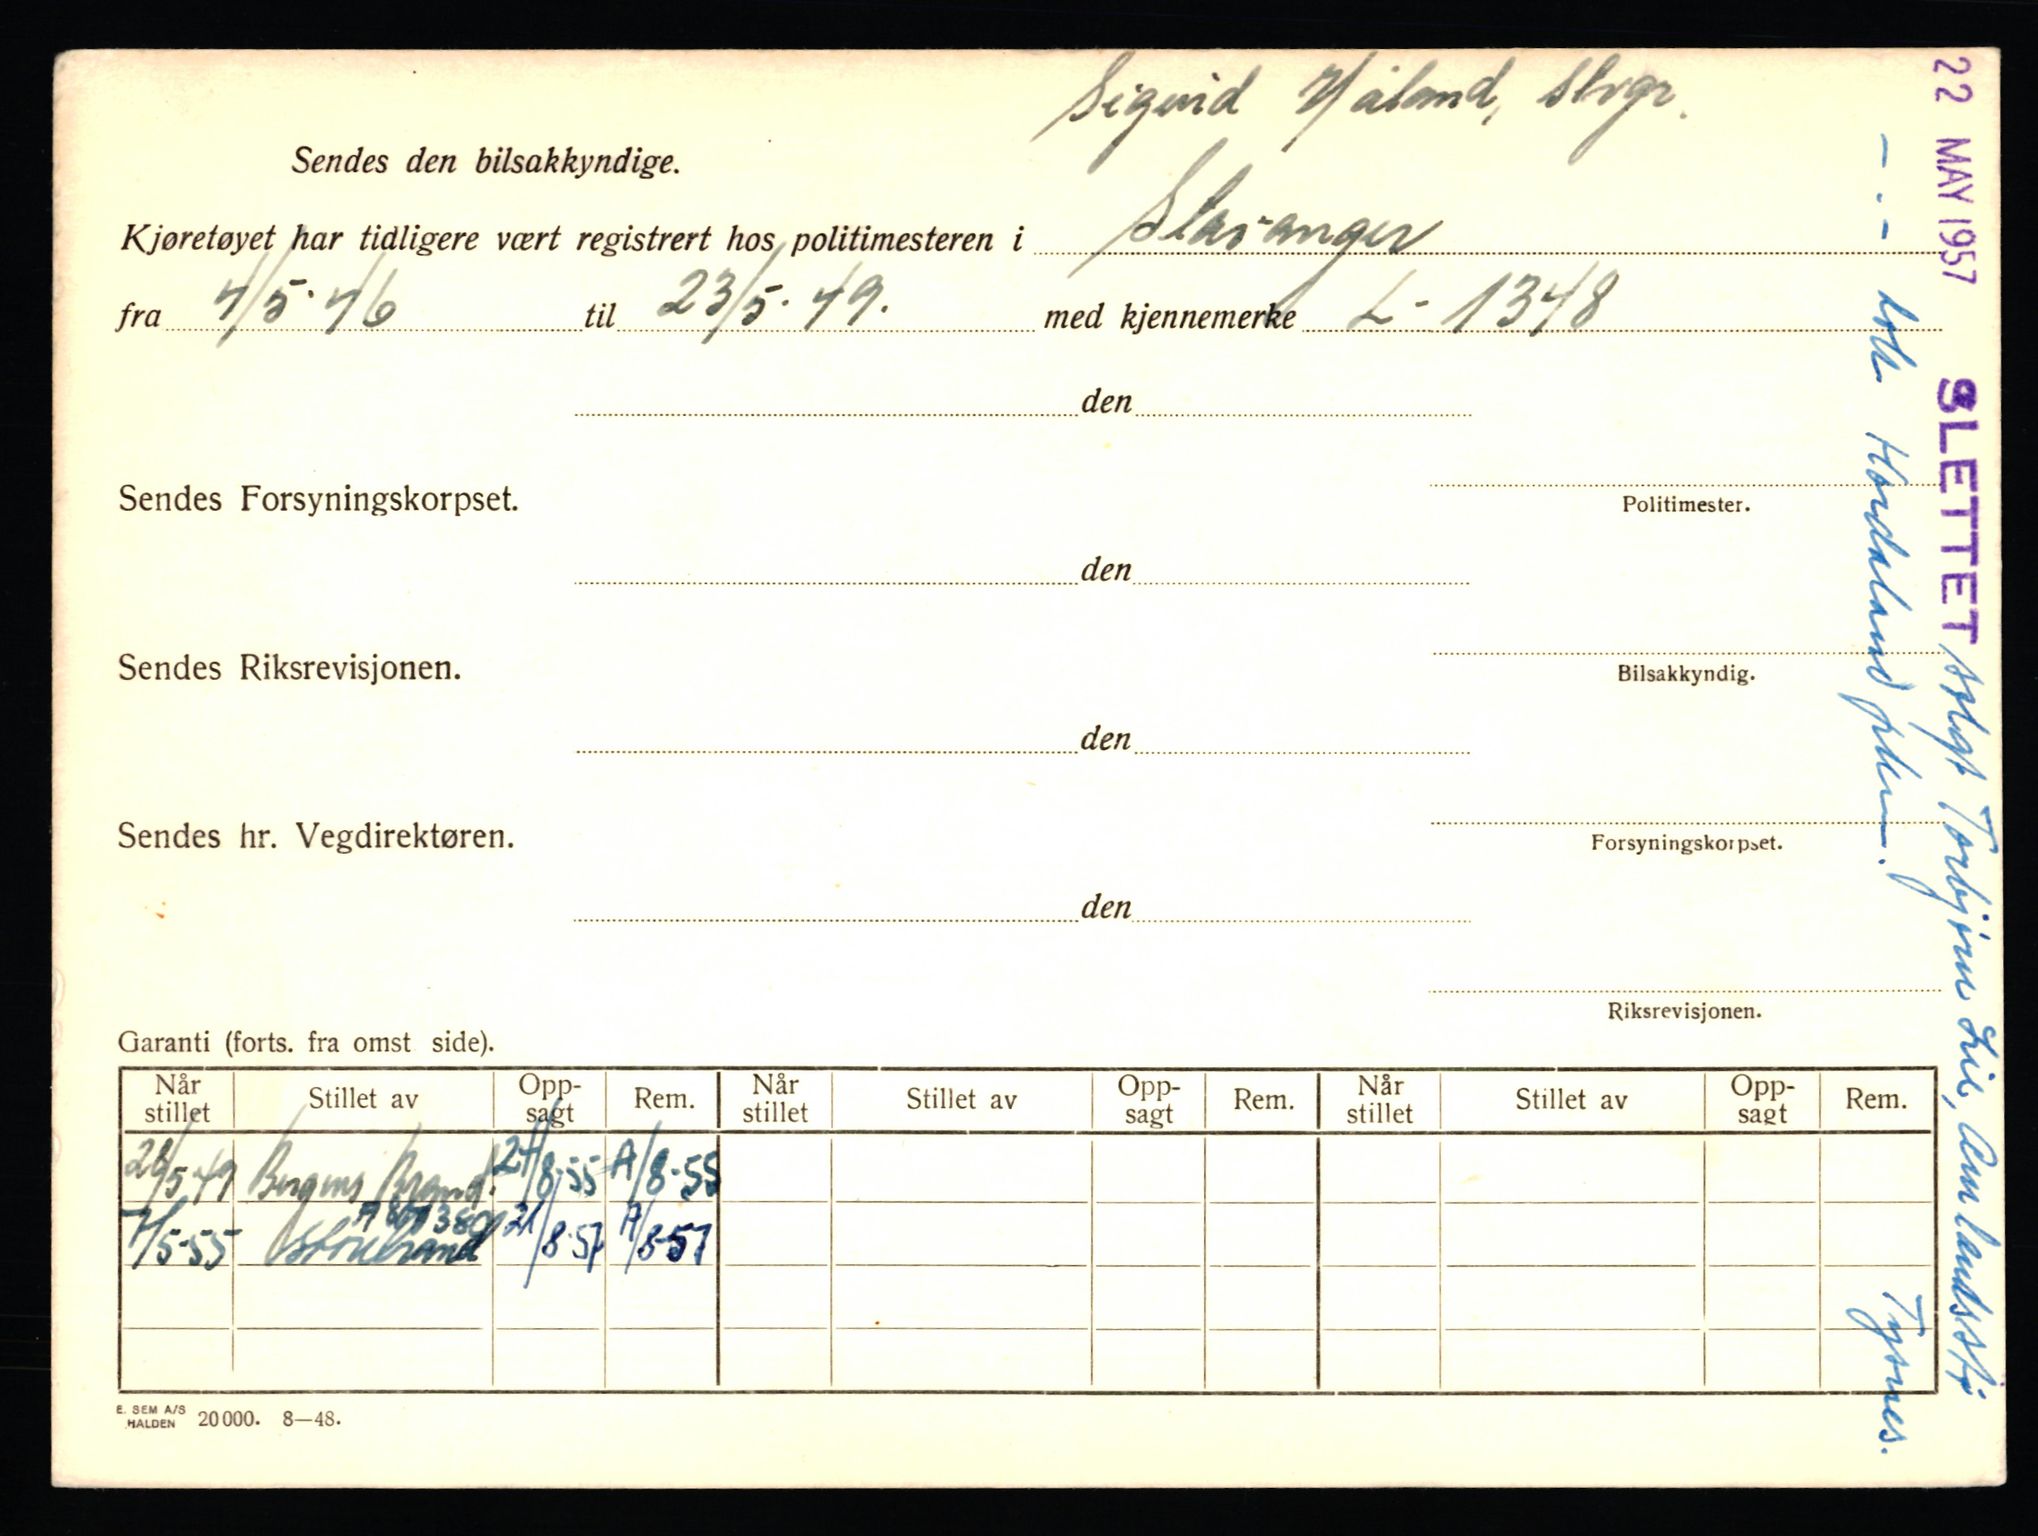 Sigurd Håland, Stvgr.
Sendes den bilsakkyndige.
Kjøretøyet har tidligere vært registrert hos politimesteren i Stavanger
fra 4/5-46 til 23/5-49. med kjennemerke L-1348
den
Sendes Forsyningskorpset.
Politimester.
den
Sendes Riksrevisjonen.
Bilsakkyndig.
den
Sendes hr. Vegdirektøren.
Forsyningskorpset.
den
Riksrevisjonen.
Garanti (forts. fra omst side).
Når stillet Stillet av Opp-sagt Rem. Når stillet Stillet av Opp-sagt Rem. Når stillet Stillet av Opp-sagt Rem.
28/5-49 Bergens Brand. 24/8-55 A/8-55
7/5-55 Storebrand 21/8-57 A/8-57
E. SEM A/S
HALDEN 20000. 8—48.
22 MAY 1957 SLETTET solgt Torbjørn Lie,
- . - Hordaland
Tysnes.